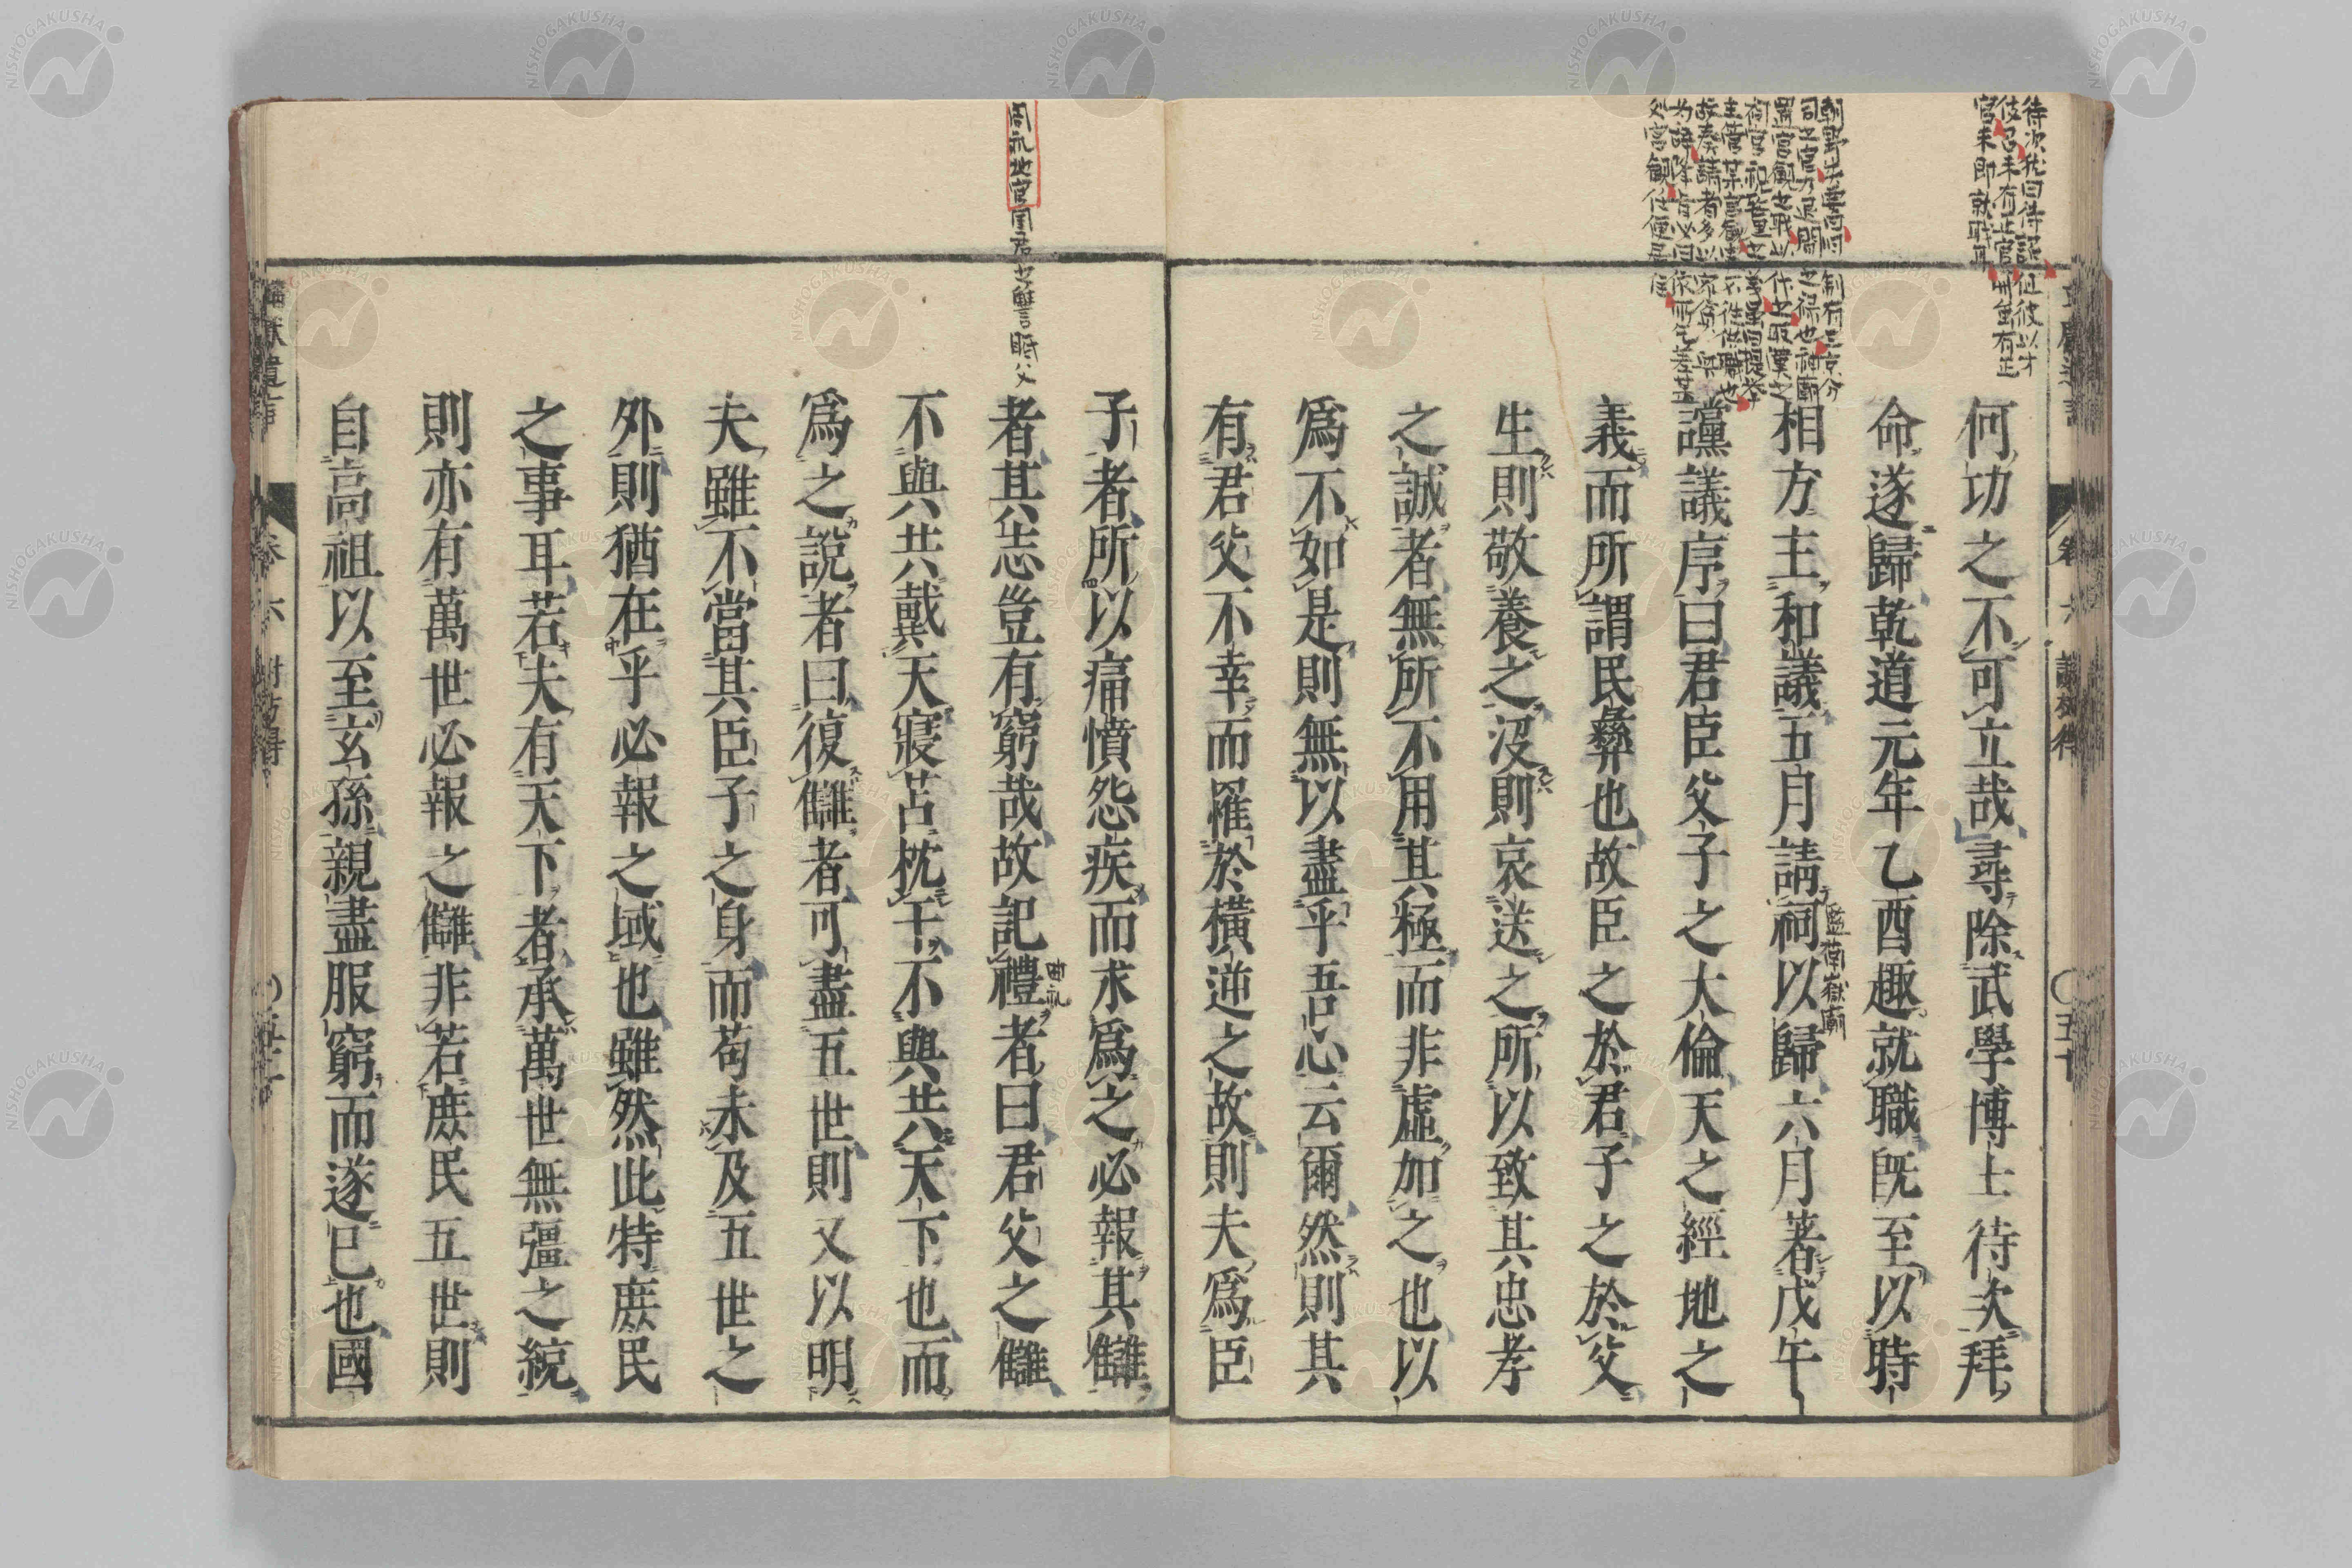 何功之不可立哉尋除武學博士待次拜
命遂歸乾道元年乙酉趣就職既至以時
相方主和議五月請祠以歸六月著戊午
監南嶽廟
讜議序曰君臣父子之大倫天之經地之
義而所謂民彝也故臣之於君子之於父
生則敬養之沒則哀送之所以致其忠孝
之誠者無所不用其極而非虛加之也以
爲不如是則無以盡乎吾心云爾然則其
有君父不幸而罹於橫逆之故則夫爲臣
周礼地官
君之讐眡父
子者所以痛憤怨疾而求爲之必報其讎
者其志豈有窮哉故記禮者曰君父之讎
曲礼
不與共戴天寢苫枕干不與共天下也而
爲之說者曰復讎者可盡五世則又以明
夫雖不當其臣子之身而苟未及五世之
外則猶在乎必報之域也雖然此特庶民
之事耳若夫有天下者承萬世無彊之統
則亦有萬世必報之讎非若庶民五世則
自高祖以至玄孫親盡服窮而遂已也國
NISHOGAKUSHA